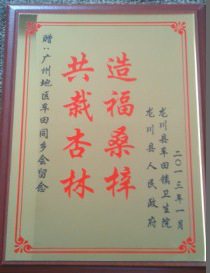 赠:广州地区车田同乡会留念
造福桑梓
共栽杏林
龙川县人民政府
龙川县车田镇卫生院
二〇一三年一月